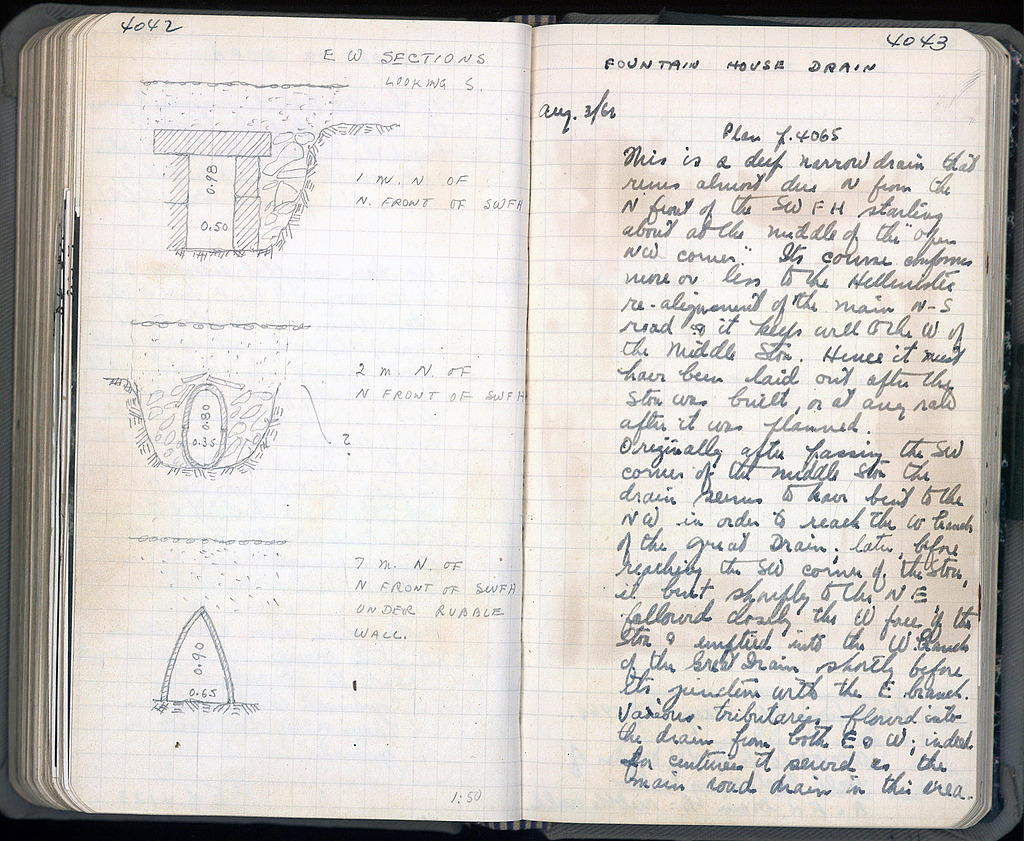 4042
E W SECTIONS
LOOKING S.
0.98
0.50
1 M. N OF
N. FRONT OF SWFH
0.80
0.35
2 M. N. OF
N FRONT OF SWFH
?
7 M. N. OF
N FRONT OF SWFH
UNDER RUBBLE
WALL.
0.90
0.65
1:50
4043
FOUNTAIN HOUSE DRAIN
Aug. 3/66
Plan p. 4065
This is a deep narrow drain that
runs almost due N from the
N front of the SWFH starting
about at the middle of the "open
NW corner". Its course conforms
more or less to the Hellenistic
re-alignment of the main N-S
road & it keeps well to the W of
the Middle Stoa. Hence it must
have been laid out after the
Stoa was built, or at any rate
after it was planned.
Originally after passing the SW
corner of the Middle Stoa the
drain seems to have bent to the
NW in order to reach the W branch
of the Great Drain; later, before
reaching the SW corner of the Stoa,
it bent sharply to the NE
followed closely the W face of the
Stoa & emptied into the W. branch
of the Great Drain shortly before
its junction with the E branch.
Various tributaries flowed into
the drain from both E & W; indeed
for centuries it served as the
main road drain in this area.